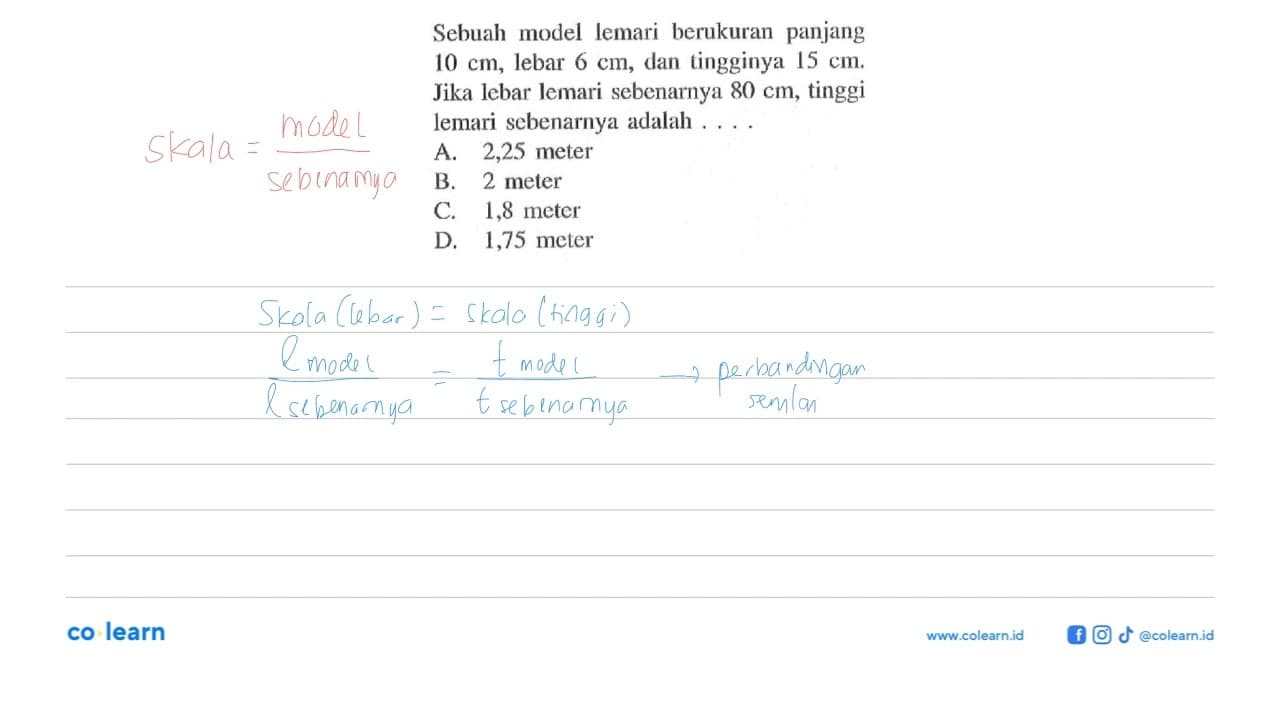 Sebuah model lemari berukuran panjang
10 cm, lebar 6 cm, dan tingginya 15 cm.
Jika lebar lemari sebenarnya 80 cm, tinggi
lemari sebenarnya adalah . . . .
A. 2,25 meter
B. 2 meter
C. 1,8 meter
D. 1,75 meter
Skala = model
sebenarnya
Skala (lebar) = skala (tinggi)
l model = t model → perbandingan
l sebenarnya t sebenarnya senilai
co learn
www.colearn.id @colearn.id